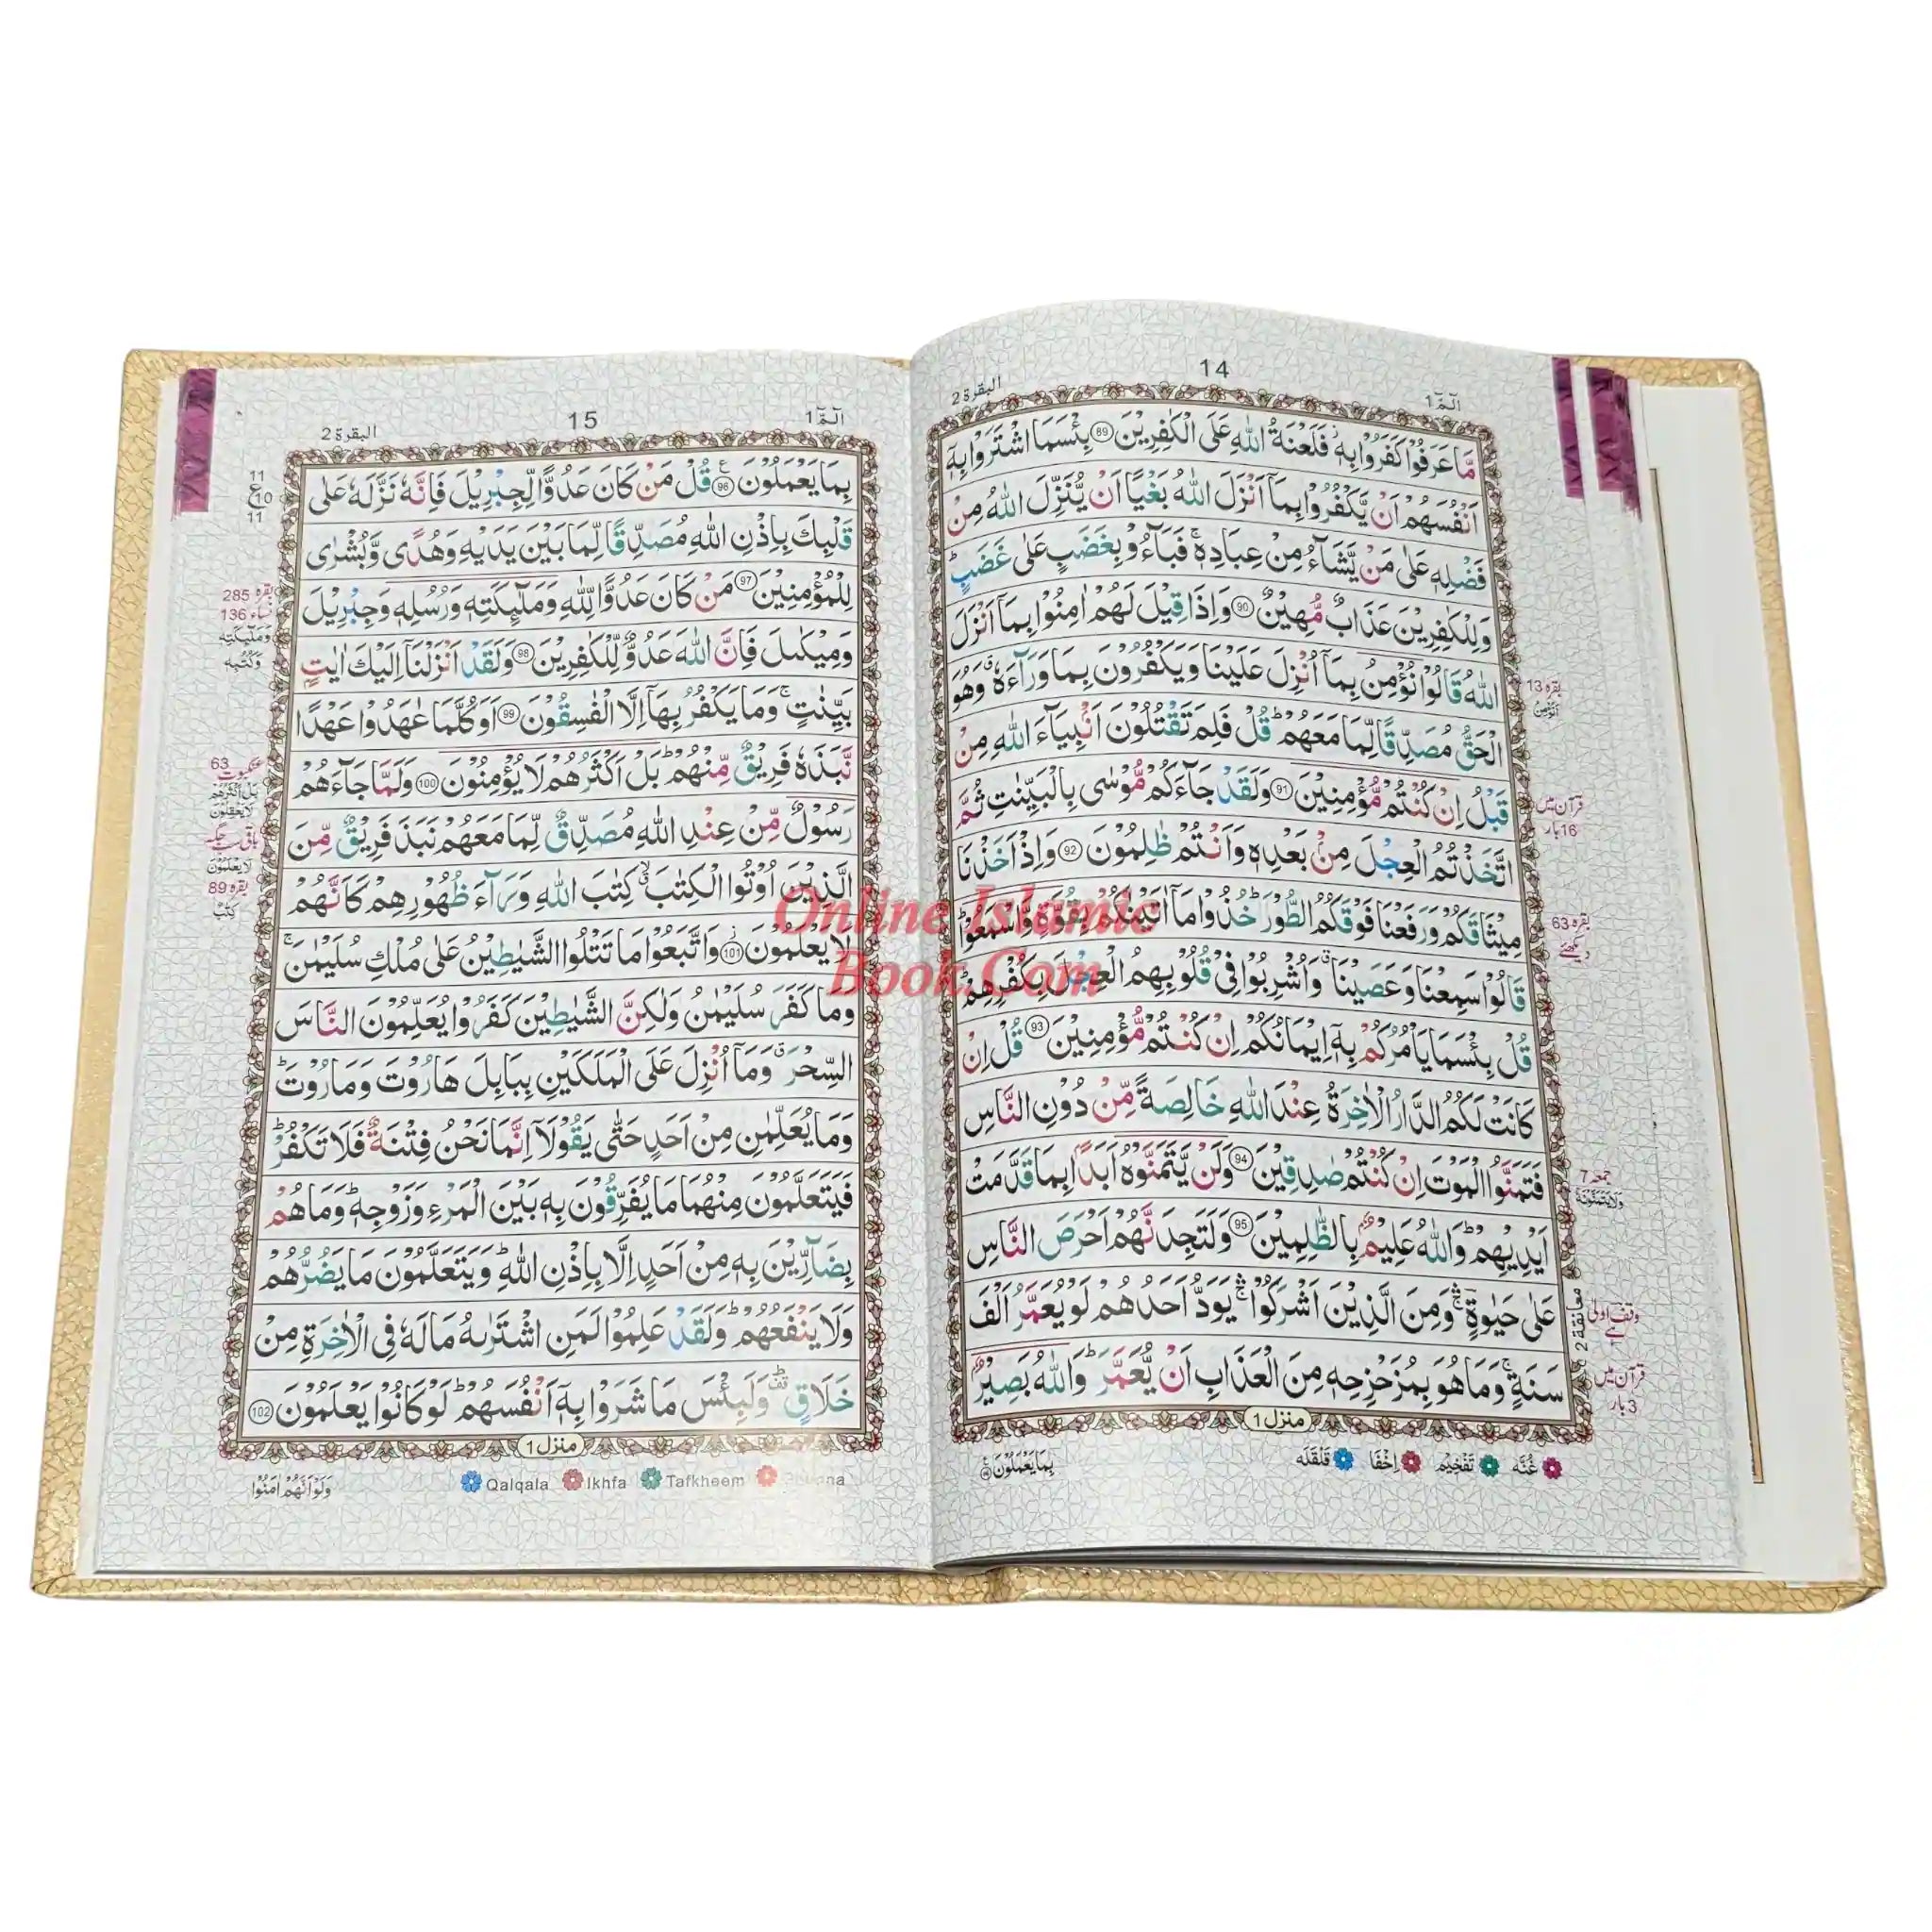 البقرة 2
14
الٓمّٓ 1
مَّا عَرَفُوْا كَفَرُوْا بِهٖ٘ فَلَعْنَةُ اللّٰهِ عَلَى الْكٰفِرِيْنَ 89 بِئْسَمَا اشْتَرَوْا بِهٖٓ
اَنْفُسَهُمْ اَنْ يَّكْفُرُوْا بِمَآ اَنْزَلَ اللّٰهُ بَغْيًا اَنْ يُّنَزِّلَ اللّٰهُ مِنْ
فَضْلِهٖ عَلٰى مَنْ يَّشَآءُ مِنْ عِبَادِهٖ ۚ فَبَآءُوْ بِغَضَبٍ عَلٰى غَضَبٍ ؕ
وَلِلْكٰفِرِيْنَ عَذَابٌ مُّهِيْنٌ 90 وَاِذَا قِيْلَ لَهُمْ اٰمِنُوْا بِمَآ اَنْزَلَ
اللّٰهُ قَالُوْا نُؤْمِنُ بِمَآ اُنْزِلَ عَلَيْنَا وَيَكْفُرُوْنَ بِمَا وَرَآءَهٗ ۗ وَهُوَ
الْحَقُّ مُصَدِّقًا لِّمَا مَعَهُمْ ؕ قُلْ فَلِمَ تَقْتُلُوْنَ اَنْۢبِيَآءَ اللّٰهِ مِنْ
قَبْلُ اِنْ كُنْتُمْ مُّؤْمِنِيْنَ 91 وَلَقَدْ جَآءَكُمْ مُّوْسٰى بِالْبَيِّنٰتِ ثُمَّ
اتَّخَذْتُمُ الْعِجْلَ مِنْۢ بَعْدِهٖ وَاَنْتُمْ ظٰلِمُوْنَ 92 وَاِذْ اَخَذْنَا
مِيْثَاقَكُمْ وَرَفَعْنَا فَوْقَكُمُ الطُّوْرَ ؕ خُذُوْا مَآ اٰتَيْنٰكُمْ بِقُوَّةٍ وَّاسْمَعُوْا ؕ
قَالُوْا سَمِعْنَا وَعَصَيْنَا ۗ وَاُشْرِبُوْا فِيْ قُلُوْبِهِمُ الْعِجْلَ بِكُفْرِهِمْ ؕ
قُلْ بِئْسَمَا يَاْمُرُكُمْ بِهٖٓ اِيْمَانُكُمْ اِنْ كُنْتُمْ مُّؤْمِنِيْنَ 93 قُلْ اِنْ
كَانَتْ لَكُمُ الدَّارُ الْاٰخِرَةُ عِنْدَ اللّٰهِ خَالِصَةً مِّنْ دُوْنِ النَّاسِ
فَتَمَنَّوُا الْمَوْتَ اِنْ كُنْتُمْ صٰدِقِيْنَ 94 وَلَنْ يَّتَمَنَّوْهُ اَبَدًاۢ بِمَا قَدَّمَتْ
اَيْدِيْهِمْ ؕ وَاللّٰهُ عَلِيْمٌۢ بِالظّٰلِمِيْنَ 95 وَلَتَجِدَنَّهُمْ اَحْرَصَ النَّاسِ
عَلٰى حَيٰوةٍ ۛۚ وَمِنَ الَّذِيْنَ اَشْرَكُوْا ۛۚ يَوَدُّ اَحَدُهُمْ لَوْ يُعَمَّرُ اَلْفَ
سَنَةٍ ۚ وَمَا هُوَ بِمُزَحْزِحِهٖ مِنَ الْعَذَابِ اَنْ يُّعَمَّرَ ؕ وَاللّٰهُ بَصِيْرٌۢ
منزل 1
بقره 13
اَنُؤْمِنُ
قرآن میں
16 بار
بقره 63
دیکھئے
جمعه 7
وَلَا يَتَمَنَّوْنَهٗٓ
معانقة 2
وقف اولی
ہے
قرآن میں
3 بار
غُنَّه تَفْخِيْم اِخْفَا قَلْقَلَه
بِمَا يَعْمَلُوْنَ 96
البقرة 2
15
الٓمّٓ 1
بِمَا يَعْمَلُوْنَ 96 قُلْ مَنْ كَانَ عَدُوًّا لِّجِبْرِيْلَ فَاِنَّهٗ نَزَّلَهٗ عَلٰى
قَلْبِكَ بِاِذْنِ اللّٰهِ مُصَدِّقًا لِّمَا بَيْنَ يَدَيْهِ وَهُدًى وَّبُشْرٰى
لِلْمُؤْمِنِيْنَ 97 مَنْ كَانَ عَدُوًّا لِّلّٰهِ وَمَلٰٓئِكَتِهٖ وَرُسُلِهٖ وَجِبْرِيْلَ
وَمِيْكٰىلَ فَاِنَّ اللّٰهَ عَدُوٌّ لِّلْكٰفِرِيْنَ 98 وَلَقَدْ اَنْزَلْنَآ اِلَيْكَ اٰيٰتٍۢ
بَيِّنٰتٍ ۚ وَمَا يَكْفُرُ بِهَآ اِلَّا الْفٰسِقُوْنَ 99 اَوَكُلَّمَا عٰهَدُوْا عَهْدًا
نَّبَذَهٗ فَرِيْقٌ مِّنْهُمْ ؕ بَلْ اَكْثَرُهُمْ لَا يُؤْمِنُوْنَ 100 وَلَمَّا جَآءَهُمْ
رَسُوْلٌ مِّنْ عِنْدِ اللّٰهِ مُصَدِّقٌ لِّمَا مَعَهُمْ نَبَذَ فَرِيْقٌ مِّنَ
الَّذِيْنَ اُوْتُوا الْكِتٰبَ ۙ كِتٰبَ اللّٰهِ وَرَآءَ ظُهُوْرِهِمْ كَاَنَّهُمْ
لَا يَعْلَمُوْنَ 101 وَاتَّبَعُوْا مَا تَتْلُوا الشَّيٰطِيْنُ عَلٰى مُلْكِ سُلَيْمٰنَ ۚ
وَمَا كَفَرَ سُلَيْمٰنُ وَلٰكِنَّ الشَّيٰطِيْنَ كَفَرُوْا يُعَلِّمُوْنَ النَّاسَ
السِّحْرَ ۗ وَمَآ اُنْزِلَ عَلَى الْمَلَكَيْنِ بِبَابِلَ هَارُوْتَ وَمَارُوْتَ ؕ
وَمَا يُعَلِّمٰنِ مِنْ اَحَدٍ حَتّٰى يَقُوْلَآ اِنَّمَا نَحْنُ فِتْنَةٌ فَلَا تَكْفُرْ ؕ
فَيَتَعَلَّمُوْنَ مِنْهُمَا مَا يُفَرِّقُوْنَ بِهٖ بَيْنَ الْمَرْءِ وَزَوْجِهٖ ؕ وَمَا هُمْ
بِضَآرِّيْنَ بِهٖ مِنْ اَحَدٍ اِلَّا بِاِذْنِ اللّٰهِ ؕ وَيَتَعَلَّمُوْنَ مَا يَضُرُّهُمْ
وَلَا يَنْفَعُهُمْ ؕ وَلَقَدْ عَلِمُوْا لَمَنِ اشْتَرٰىهُ مَا لَهٗ فِي الْاٰخِرَةِ مِنْ
خَلَاقٍ ؕ وَلَبِئْسَ مَا شَرَوْا بِهٖٓ اَنْفُسَهُمْ ؕ لَوْ كَانُوْا يَعْلَمُوْنَ 102
منزل 1
11
ع 10
11
بقره 285
نساء 136
وَمَلٰٓئِكَتِهٖ
وَكُتُبِهٖ
عنكبوت 63
بَلْ اَكْثَرُهُمْ
لَا يَعْقِلُوْنَ
لَا يَعْلَمُوْنَ
بقره 89
كِتٰبٌ
Qalqala Ikhfa Tafkheem
وَلَوْ اَنَّهُمْ اٰمَنُوْا
Online Islamic
Book.Com